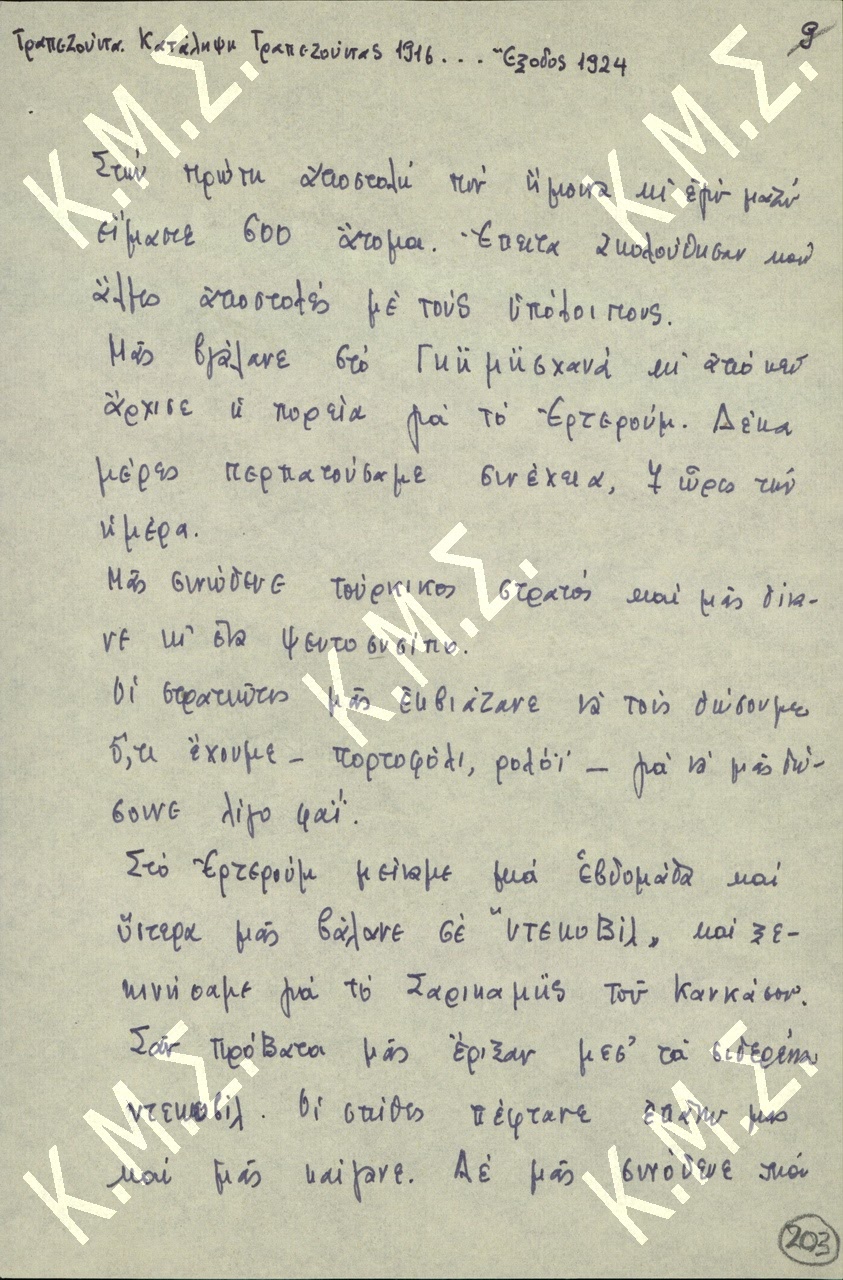 9
Τραπεζούντα. Κατάληψη Τραπεζούντας 1916... Ἔξοδος 1924
Στήν πρώτη ἀποστολή πού ἤμουνα κι' ἐγώ μαζύ
εἴμαστε 600 ἄτομα. Ἔπειτα ἀκολούθησαν καί
ἄλλες ἀποστολές μέ τούς ὑπόλοιπους.
Μᾶς βγάλανε στό Γκϋμϋσχανά κι' ἀπό κεῖ
ἄρχισε ἡ πορεία γιά τό Ἐρτερούμ. Δέκα
μέρες περπατούσαμε συνέχεια, 7 ὧρες τήν
ἡμέρα.
Μᾶς συνώδευε τούρκικος στρατός καί μᾶς δίνα-
νε κι' ἕνα ψευτοσυσίτιο.
Οἱ στρατιῶτες μᾶς ἐκβιάζανε νά τούς δώσουμε
ὅ,τι ἔχουμε – πορτοφόλι, ρολόϊ – γιά νά μᾶς δώ-
σουνε λίγο φαΐ.
Στό Ἐρτερούμ μείναμε μιά ἑβδομάδα καί
ὕστερα μᾶς βάλανε σέ "ντεκοβίλ" καί ξε-
κινήσαμε γιά τό Σαρικαμής τοῦ Καυκάσου.
Σάν πρόβατα μᾶς ἔριξαν μεσ' τά σιδερένια
ντεκοβίλ. Οἱ σπίθες πέφτανε ἐπάνω μας
καί μᾶς καίγανε. Δέ μᾶς συνόδευε πιά
203
Κ.Μ.Σ.
Κ.Μ.Σ.
Κ.Μ.Σ.
Κ.Μ.Σ.
Κ.Μ.Σ.